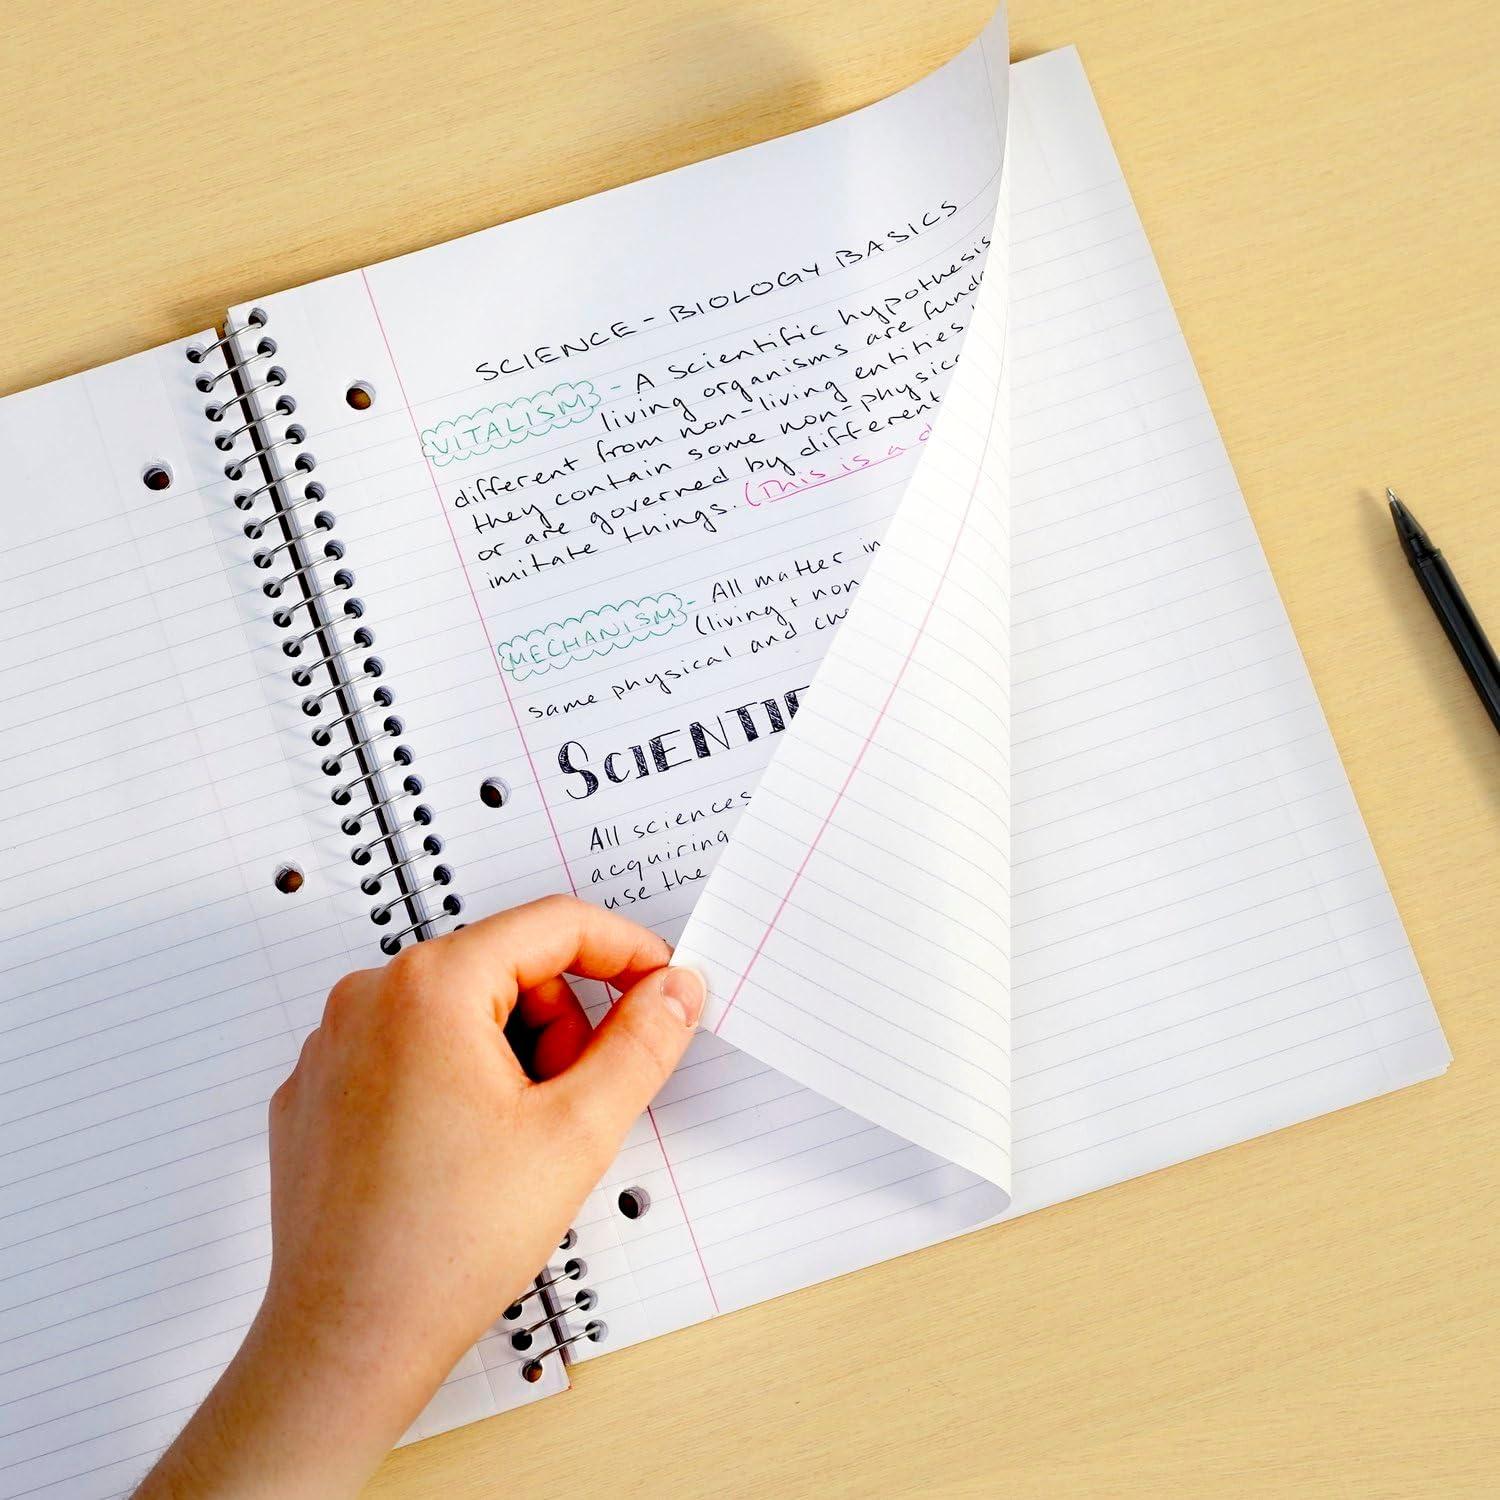 SCIENCE - BIOLOGY BASICS
VITALISM - A scientific hypothesis
living organisms are fund
different from non-living entities
they contain some non-physic
or are governed by different
imitate things. (This is a d
MECHANISM - All matter in
(living + non
same physical and che
SCIENTIF
All sciences
acquiring
use the